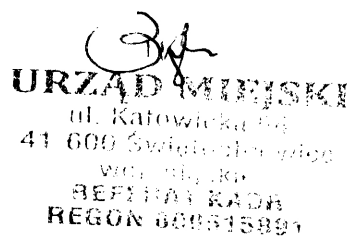 URZĄD MIEJSKI
ul. Katowicka 54
41 600 Świętochłowice
woj. śląskie
REFERAT KADR
REGON